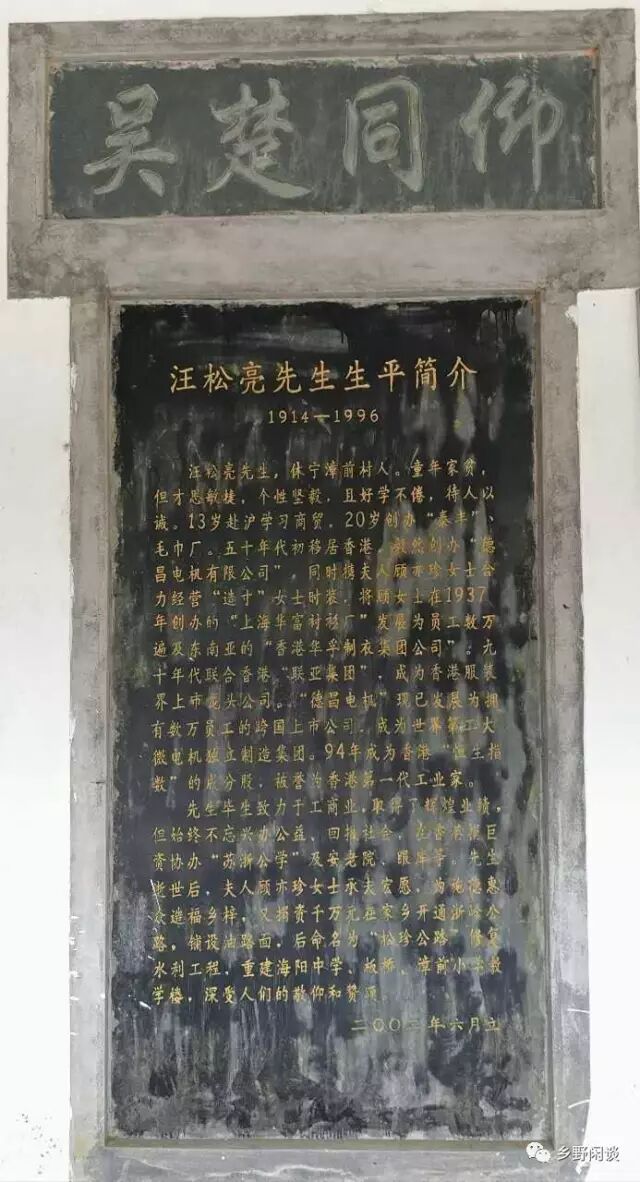 吴楚同仰
汪松亮先生生平简介
1914—1996
汪松亮先生，休宁漳前村人。童年家贫，
但才思敏捷，个性坚毅，且好学不倦，待人以
诚。13岁赴沪学习商贸，20岁创办“泰丰”、
毛巾厂。五十年代初移居香港，毅然创办“德
昌电机有限公司”，同时携夫人顾亦珍女士合
力经营“造寸”女士时装，将顾女士在1937
年创办的“上海华富衬衫厂”发展为员工数万
遍及东南亚的“香港华孚制衣集团公司”。九
十年代联合香港“联亚集团”，成为香港服装
界上市龙头公司。“德昌电机”现已发展为拥
有数万员工的跨国上市公司，成为世界第二大
微电机独立制造集团。94年成为香港“恒生指
数”的成分股，被誉为香港第一代工业家。
先生毕生致力于工商业，取得了辉煌业绩，
但始终不忘兴办公益，回报社会，在香港捐巨
资协办“苏浙公学”及安老院、眼库等。先生
逝世后，夫人顾亦珍女士承夫宏愿，为施德惠
众造福乡梓，又捐资千万元在家乡开通浙岭公
路，铺设油路面，后命名为“松珍公路”修复
水利工程，重建海阳中学、板桥、漳前小学教
学楼，深受人们的敬仰和赞颂。
二〇〇二年六月立
乡野闲谈